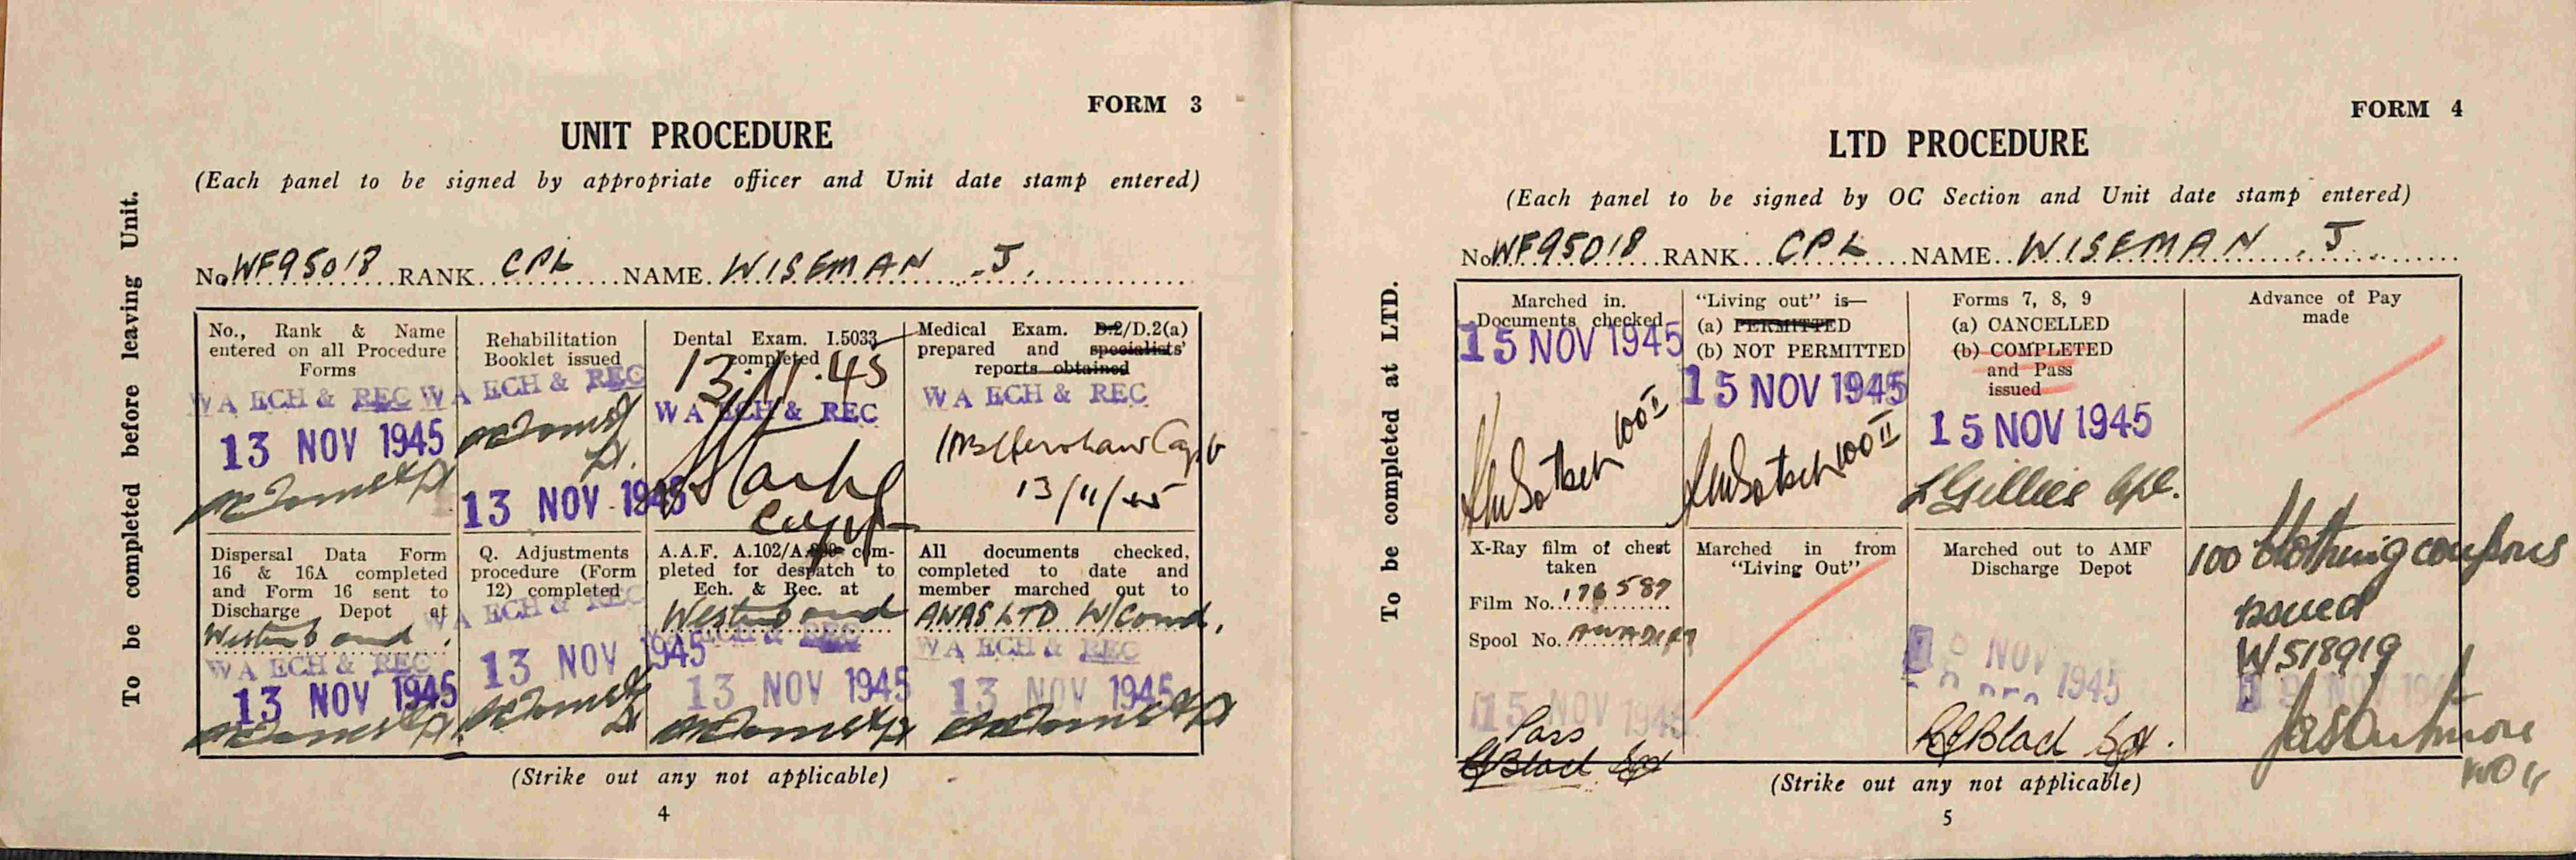 FORM 3
UNIT PROCEDURE
(Each panel to be signed by appropriate officer and Unit date stamp entered)
To be completed before leaving Unit.
No. WF95018 RANK CPL NAME WISEMAN .J.
No., Rank & Name
entered on all Procedure
Forms
WA ECH & REC
13 NOV 1945
Rehabilitation
Booklet issued
WA ECH & REC
Lt.
13 NOV 1945
Dental Exam. I.5033
completed
13.11.45
WA ECH & REC
Capt
Medical Exam. D.2/D.2(a)
prepared and specialists'
reports obtained
WA ECH & REC
Capt
13/11/45
Dispersal Data Form
16 & 16A completed
and Form 16 sent to
Discharge Depot at
Westn Comd
WA ECH & REC
13 NOV 1945
Q. Adjustments
procedure (Form
12) completed
WA ECH & REC
13 NOV 1945
Lt
A.A.F. A.102/A. com-
pleted for despatch to
Ech. & Rec. at
Westn Comd
WA ECH & REC
13 NOV 1945
All documents checked,
completed to date and
member marched out to
AWAS LTD W/Comd.
WA ECH & REC
13 NOV 1945
(Strike out any not applicable)
4
FORM 4
LTD PROCEDURE
(Each panel to be signed by OC Section and Unit date stamp entered)
To be completed at LTD.
No. WF95018 RANK CPL NAME WISEMAN . J
Marched in.
Documents checked
15 NOV 1945
WO II
"Living out" is—
(a) PERMITTED
(b) NOT PERMITTED
15 NOV 1945
WO II
Forms 7, 8, 9
(a) CANCELLED
(b) COMPLETED
and Pass
issued
15 NOV 1945
L Gillies Cpl.
Advance of Pay
made
X-Ray film of chest
taken
Film No. 176587
Spool No.
15 NOV 1945
Pass
Black Sgt
Marched in from
"Living Out"
Marched out to AMF
Discharge Depot
NOV 1945
Black Sgt.
100 Clothing coupons
issued
W518919
19 NOV 194
WO II
(Strike out any not applicable)
5